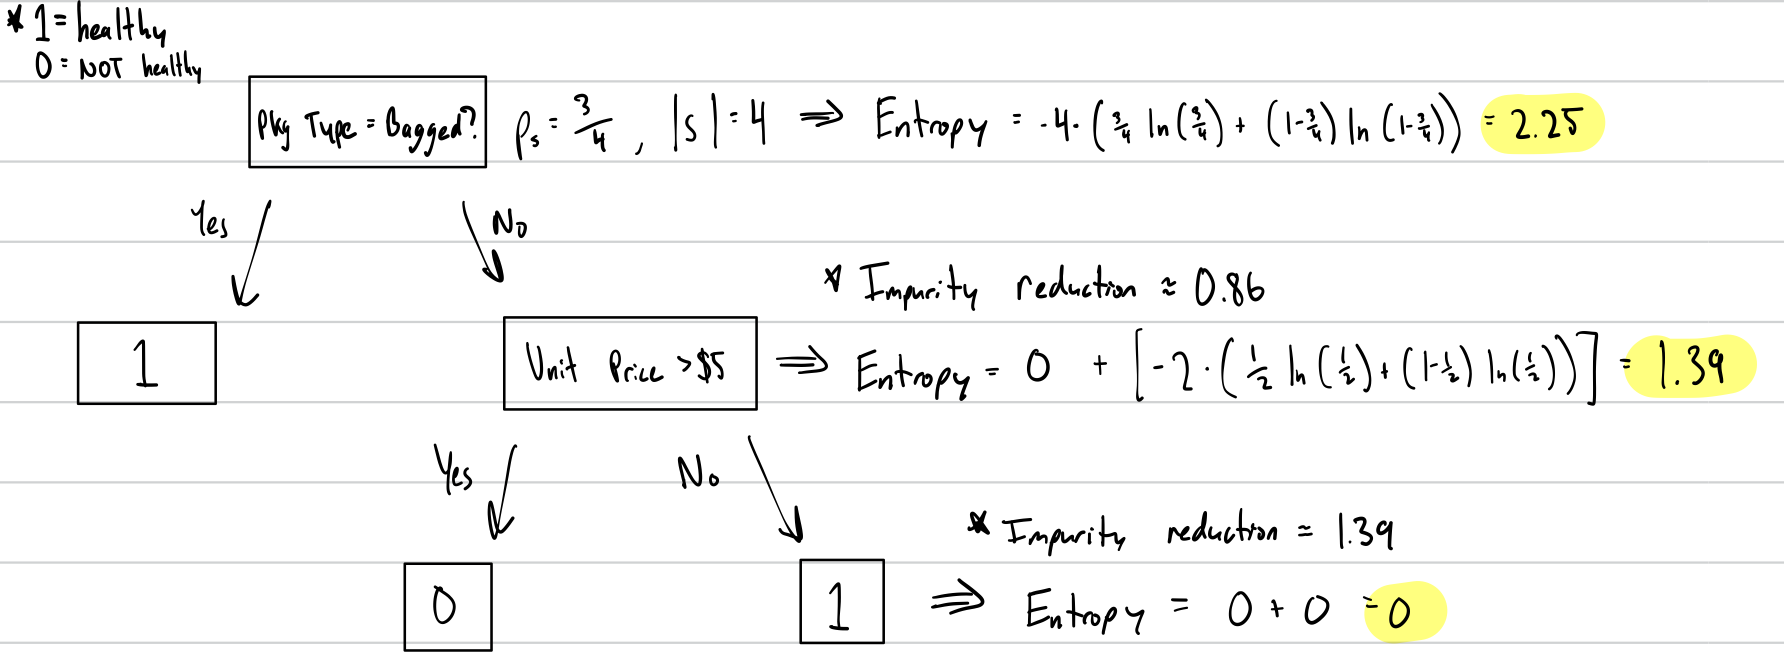 * 1 = healthy
0 = NOT healthy
Pkg Type = Bagged? ρₛ = 3/4 , |s| = 4 ⇒ Entropy = -4·(3/4 ln(3/4) + (1-3/4) ln(1-3/4)) = 2.25
Yes No
* Impurity reduction ≈ 0.86
1 Unit Price >$5 ⇒ Entropy = 0 + [-2·(1/2 ln(1/2) + (1-1/2) ln(1/2))] = 1.39
Yes No
* Impurity reduction = 1.39
0 1 ⇒ Entropy = 0 + 0 = 0